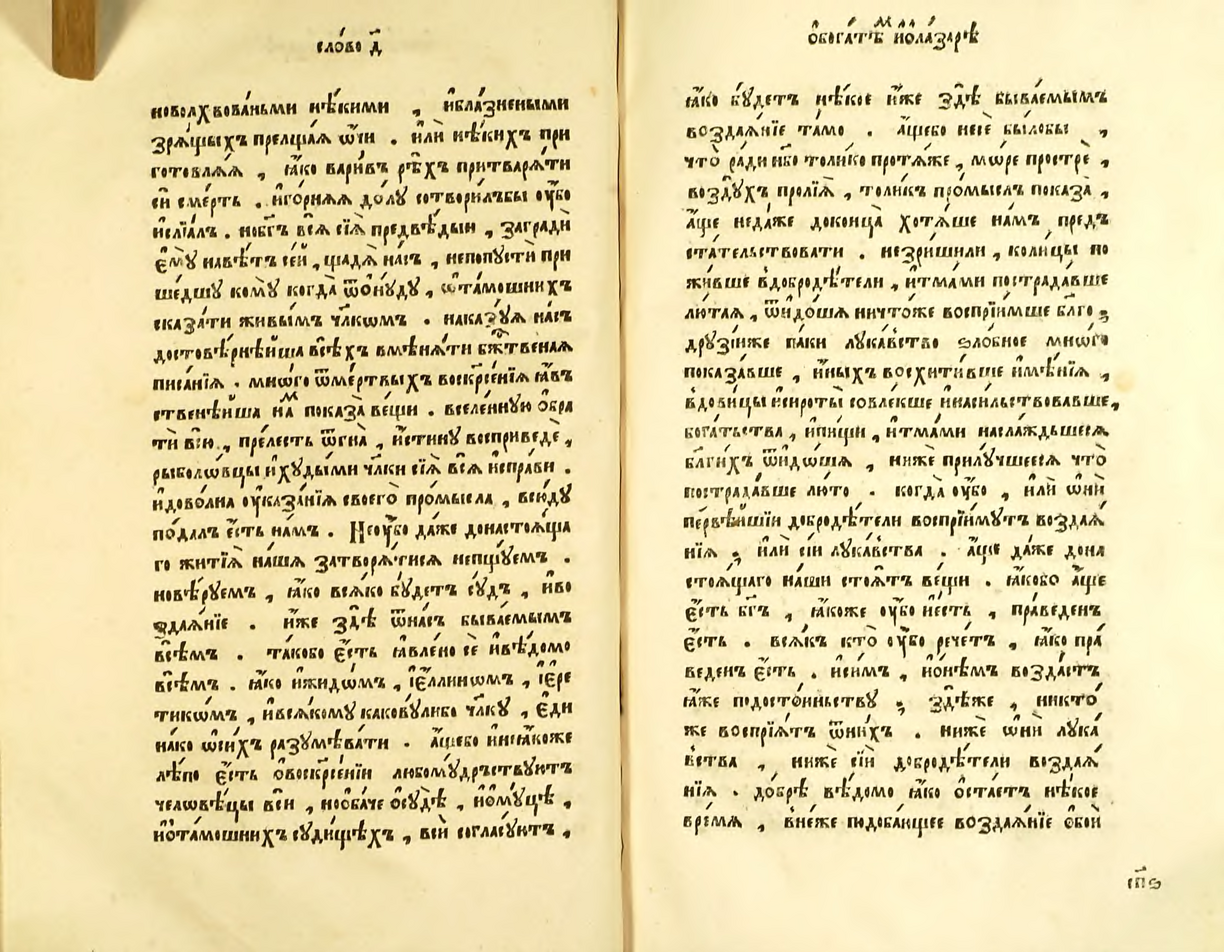 сло́во д҃
новолхвова́ньми нѣ́кими , и҆блазне́ными
зрѧ́щыхъ прелща́ѧ ѻ҆́чи . и҆лѝ нѣ́кихъ при
готовлѧ́ѧ , ꙗ҆́ко вари́въ рѣ́хъ притварѧ́ти
сѝ сме́рть . и҆го́рнѧѧ до́лу сотвори́лъбы ᲂу҆́бо
и҆слїа́лъ . нобг҃ъ всѧ̀ сїѧ̀ предвѣ́дыи , заградѝ
є҆мꙋ̀ навѣ́тъ се́й , щадѧ̀ на́съ , непопꙋстѝ при
ше́дшꙋ комꙋ̀ когда̀ ѿо́нꙋдꙋ , ѡ҆та́мошнихъ
сказа́ти живы́мъ чл҃кѡмъ . наказꙋ́ѧ на́съ
достовѣ́рнѣиша всѣ́хъ вмѣнѧ́ти бж҃твенаѧ
писа́нїѧ . мнѡ́го ѿме́ртвыхъ воскрⷭ҇е́нїѧ ꙗ҆́въ
ственѣ́иша наⷨ показа̀ ве́щи . вселе́ннꙋю ѻ҆бра
тѝ всю̀ , пре́лесть ѿгна̀ , и҆́стинꙋ восприведѐ ,
рыболѡ́вцы и҆хꙋды́ми чл҃ки сїѧ̀ всѧ̀ и҆спра́ви .
и҆дово́лна ᲂу҆каза́нїѧ своегѡ̀ про́мысла , всю́дꙋ
по́далъ є҆́сть на́мъ . Неᲂу҆́бо да́же донастоѧ́ща
го житїѧ̀ на́ша затворѧ́тисѧ непщꙋ́емъ .
новѣ́рꙋемъ , ꙗ҆́ко всѧ́ко бꙋ́детъ сꙋ́дъ , и҆во
здаѧ́нїе . и҆́же здѣ̀ ѿна́съ быва́емымъ
всѣ́мъ . та́кобо є҆́сть ꙗ҆вле́но сѐ и҆вѣ́домо
всѣ́мъ . ꙗ҆́ко и҆жидѡ́мъ , і҆е҆́ллинѡмъ , і҆е҆ре
тикѡ́мъ , и҆всѧ́комꙋ каковꙋ́либо чл҃кꙋ , є҆ди
на́ко ѡ҆си́хъ разꙋмѣва́ти . а҆́щебо и҆неꙗ҆́коже
лѣ́по є҆́сть ѻ҆воскрⷭ҇е́нїи любомꙋ́дръствꙋютъ
челѡвѣ́цы всѝ , нооба́че ѻ҆сꙋдѣ̀ , и҆ѻ҆мꙋ́цѣ ,
и҆ѻ҆та́мошнихъ сꙋди́щѣхъ , всѝ согласꙋ́ютъ ,
ѻ҆бога́тⷨѣ и҆ола́зарѣ
ꙗ҆́ко бꙋ́детъ нѣ́кое и҆́же здѣ̀ быва́емымъ
воздаѧ́нїе та́мо . а҆́щебо несѐ было́бы ,
что̀ ра́ди нбо толи́ко протѧ́же , мѡ́ре прострѐ ,
во́здꙋхъ пролїѧ̀ , толи́къ про́мыслъ показа̀ ,
а҆́ще неда́же доконца̀ хотѧ́ше на́мъ , предъ
ста́тельствовати . незри́шили , коли́цы по
жи́вше вдобродѣ́тели , и҆тма́ми пострада́вше
лю́таѧ , ѿидо́шѧ ничто́же воспрїи́мше бл҃го ;
дрꙋзі́иже па́ки лꙋка́вство ѕло́бное мнѡ́го
показа́вше , и҆́ныхъ восхити́вше и҆мѣ́нїѧ ,
вдови́цы и҆сироты̀ совле́кше и҆наси́льствовавше,
бога́тьства , и҆пи́щи , и҆тма́ми наслаждьшеесѧ
бл҃ги́хъ ѿидѡ́шѧ , нижѐ прилꙋ́чшеесѧ что̀
пострада́вше лю́то . когда̀ ᲂу҆́бо , и҆лѝ ѻ҆нѝ
первѣ́ишїи добродѣ́тели воспрїи́мꙋтъ воздаѧ́
нїѧ , и҆лѝ сі́и лꙋка́вства . а҆́ще да́же дона
стоѧ́щаго на́ши стоѧ́тъ ве́щи . ꙗ҆́кобо а҆́ще
є҆́сть бг҃ъ , ꙗ҆́коже ᲂу҆́бо и҆е́сть , пра́веденъ
є҆́сть . всѧ́къ кто̀ ᲂу҆́бо рече́тъ , ꙗ҆́ко пра́
веденъ є҆́сть . и҆си́мъ , и҆ѻ҆нѣ́мъ возда́стъ
ꙗ҆́же подосто́иньствꙋ ; здѣ́же , никто́
же воспрїѧ́тъ ѿни́хъ . нижѐ ѻ҆нѝ лꙋка́
вства , нижѐ сі́и добродѣ́тели воздаѧ́
нїѧ . до́брѣ вѣ́домо ꙗ҆́ко ѻ҆ста́етъ нѣ́кое
вре́мѧ , вне́же подоба́ющее воздаѧ́нїе ѻ҆бо́и
сп҃ѕ